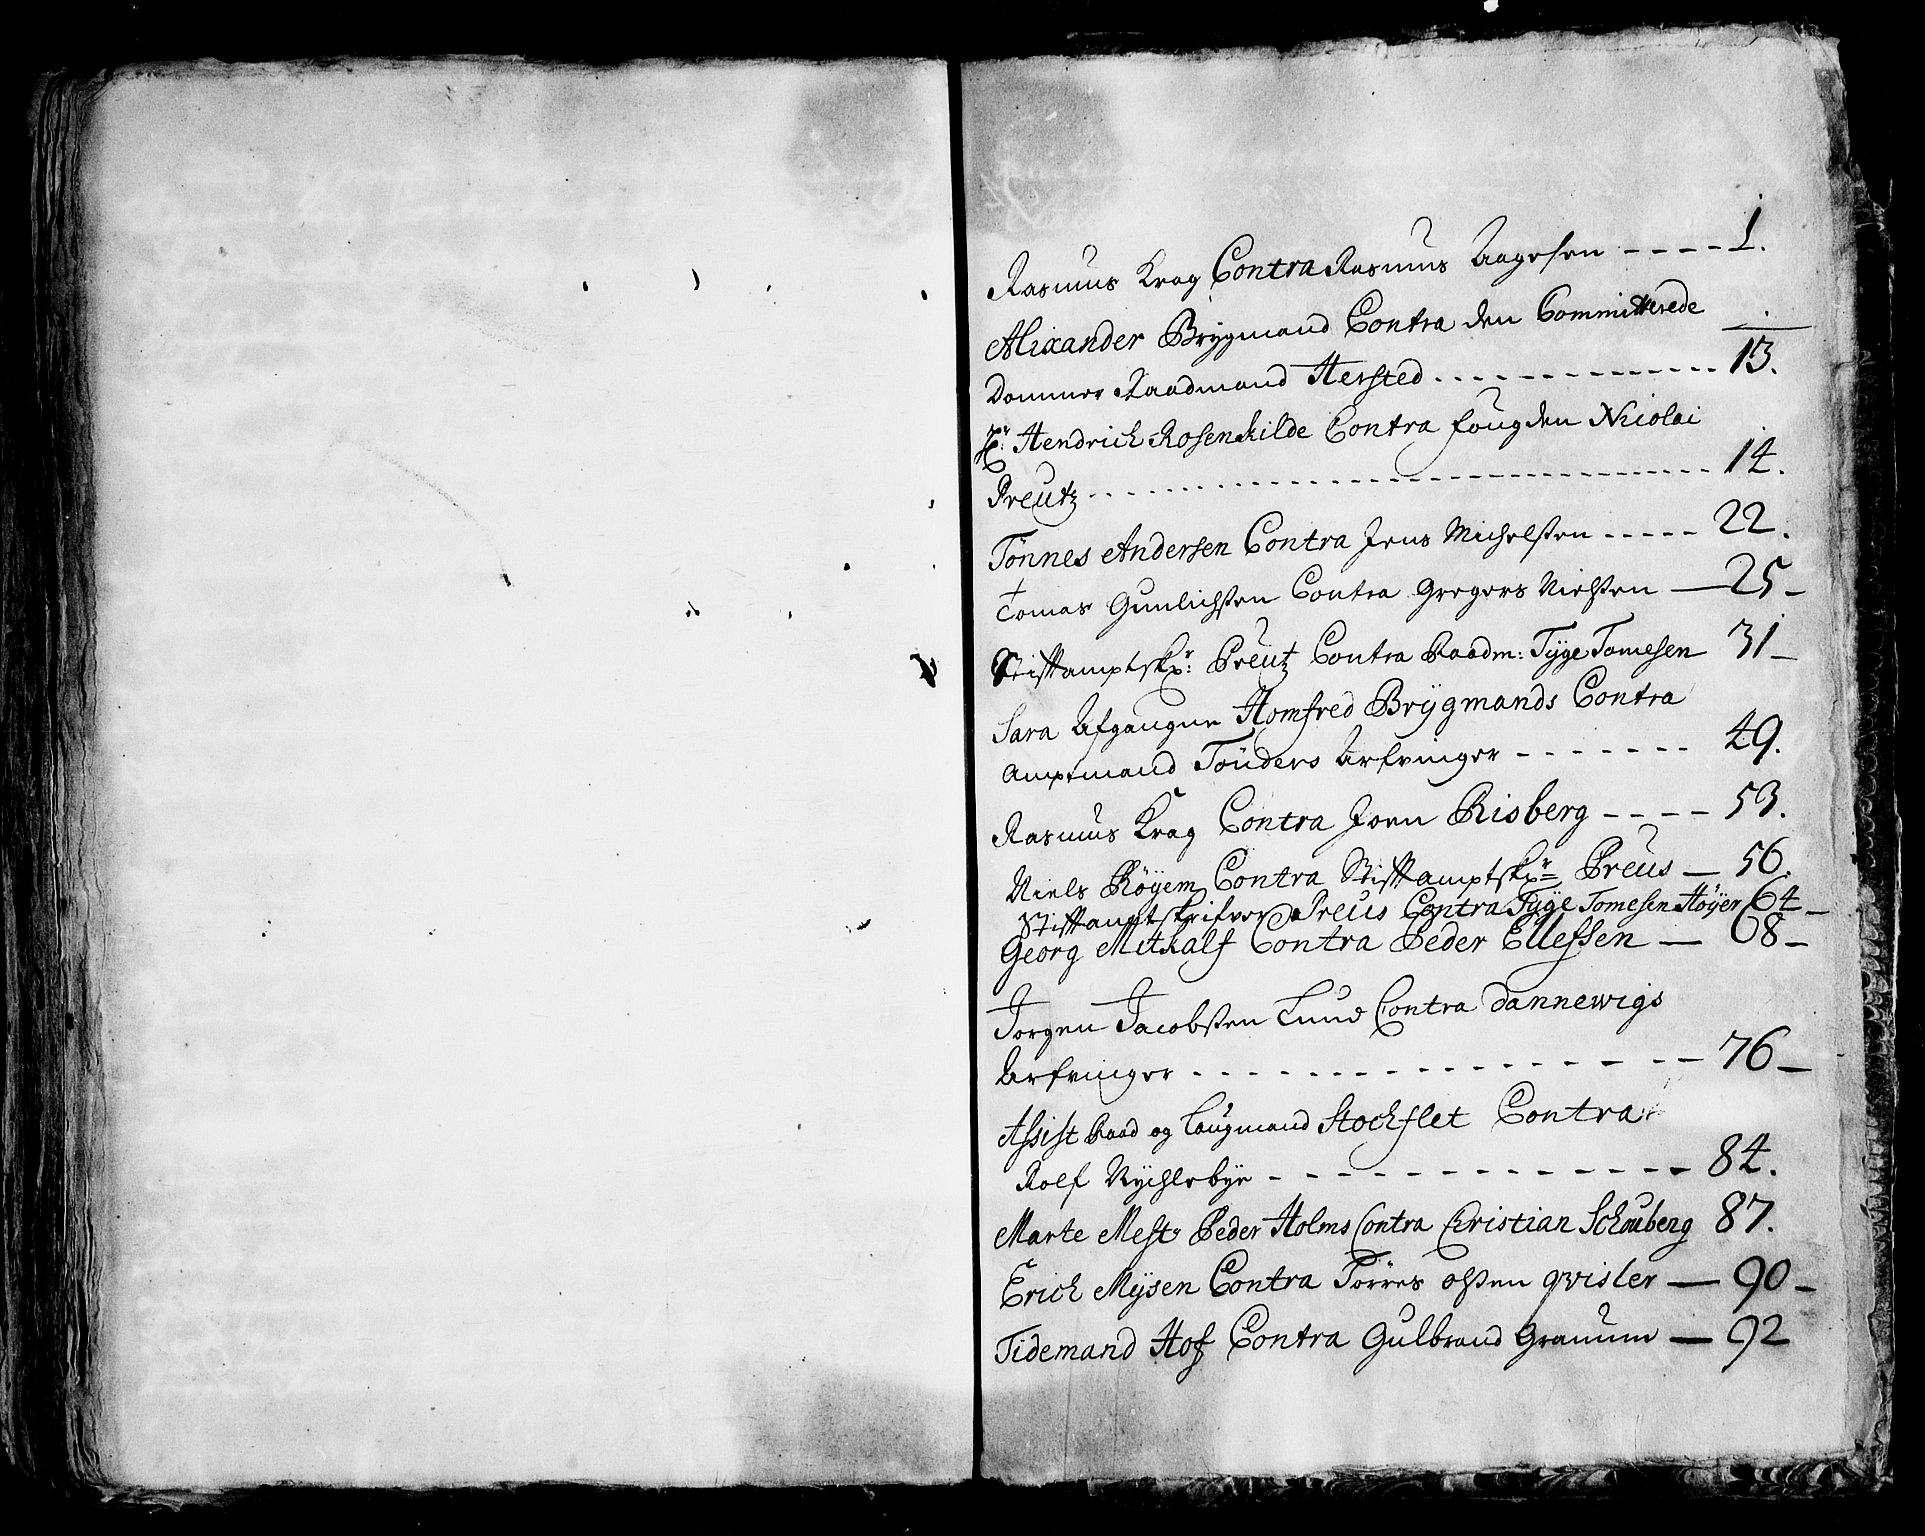 Rasmus Krag Contra Rasmus Aagesen - - - - 1.
Alixander Brÿgmand Contra den Committerede
Dommer Raadmand Hersted - - - - - - - - - - - 13.
Hr: Hendrich Rosenkilde Contra fougden Nicolai
Preutz - - - - - - - - - - - - - - - - - - - - 14.
Tønnes Andersen Contra Jens Michelsen - - - - - 22.
Tomas Gunlichsen Contra Gregers Nielsen — 25 -
Stiftamptskr: Preutz Contra Raadm: Tÿge Tomesen 31 -
Sara Afgangne Homfred Brÿgmands Contra
Amptmand Tønders Arfvinger - - - - - - - 49.
Rasmus Krag Contra Joen Risberg - - - - 53.
Niels Røyem Contra Stiftamptskr= Preus — 56.
Stiftamptskrifver Preus Contra Tÿge Tomesen Høÿer 64 -
Georg Mitkalf Contra Peder Ellefsen — 68 -
Jørgen Jacobsen Lund Contra Dannewigs
Arfvinger - - - - - - - - - - - - - - - 76 -
Assist Raad og Laugmand Stockflet Contra
Rolf Nÿchlebÿe - - - - - - - - - - - - - 84.
Marte Mestr Peder Holms Contra Christian Schouberg 87.
Erich Mÿsen Contra Torres olsen qvisler — 90 -
Tidemand Hof Contra Gulbrand Granum — 92